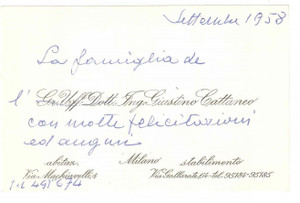 Settembre 1958
La famiglia de
l' Gr. Uff. Dott. Ing. Giustino Cattaneo
con molte felicitazioni
ed auguri
abitaz. Milano stabilimento
Via Machiavelli, 1 Via Gallarate 64 - tel. 95184-95185
tel. 491674